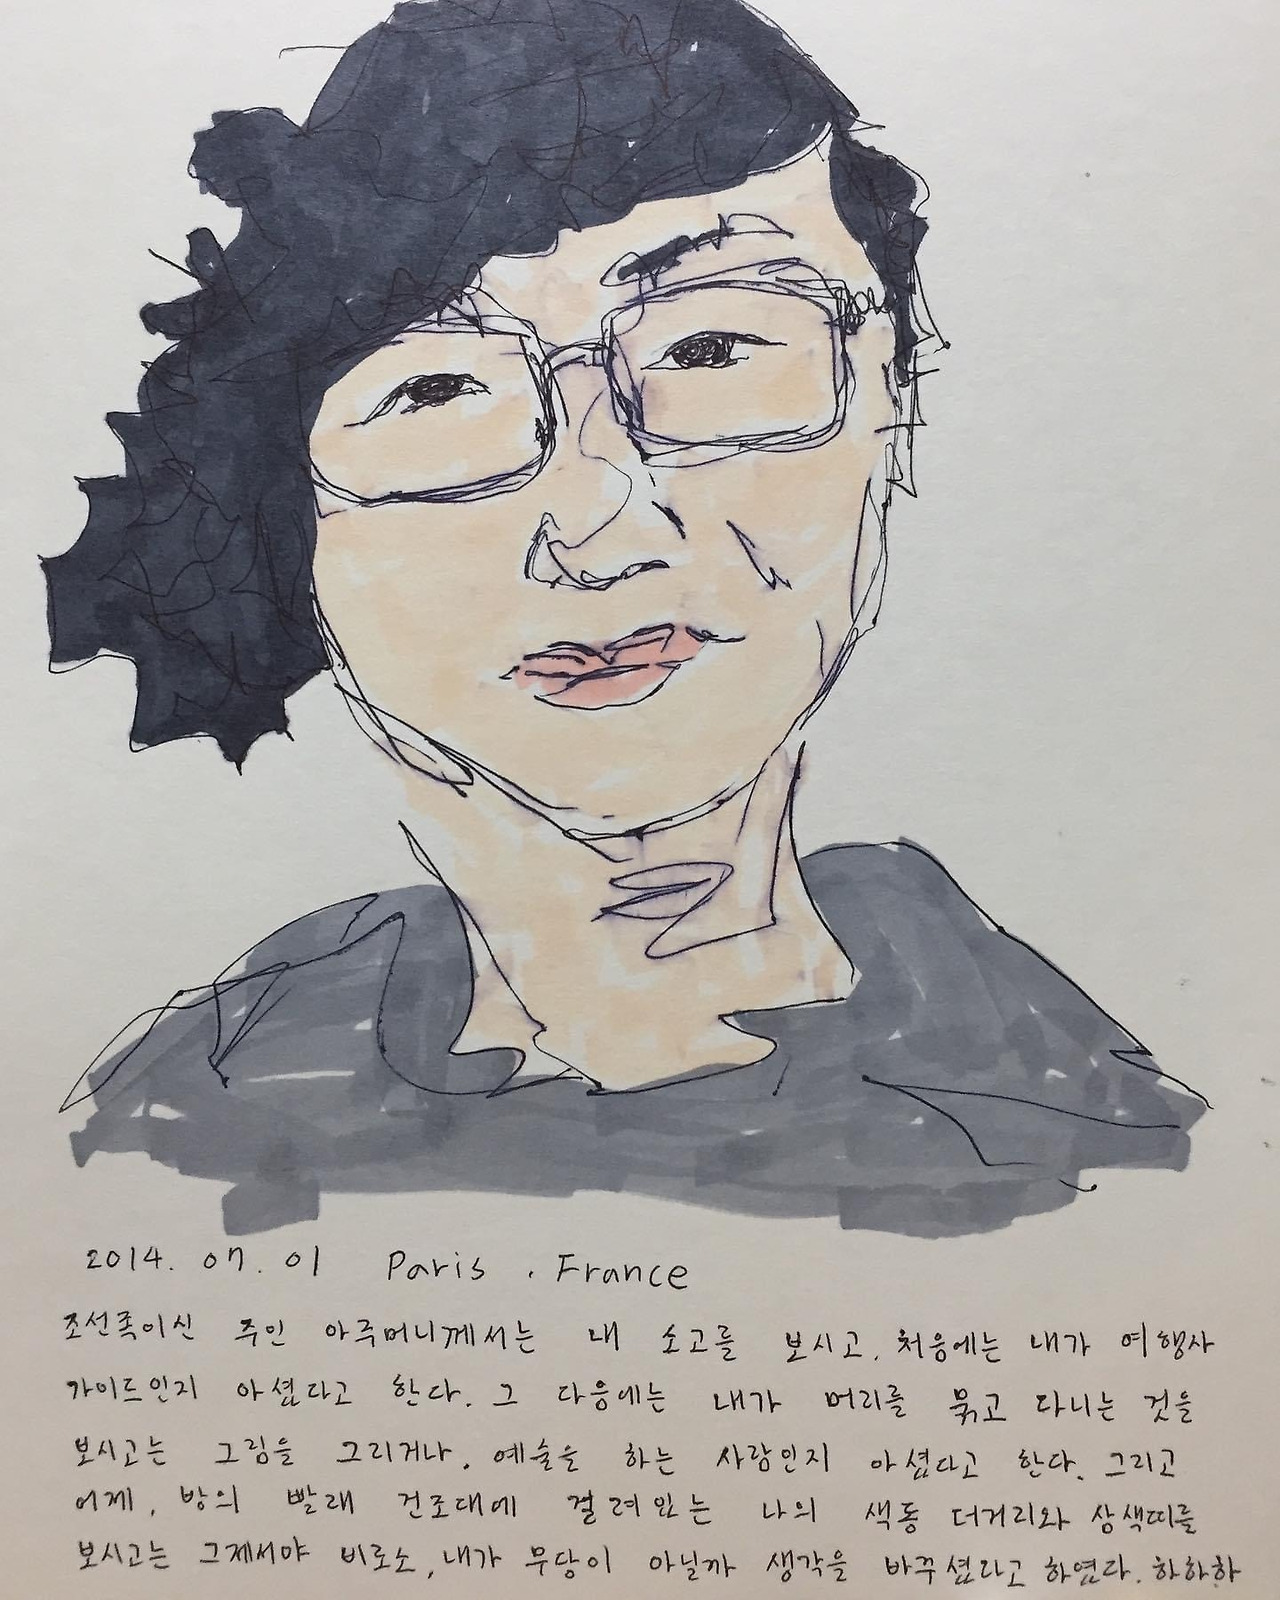 2014. 07. 01 Paris. France
조선족이신 주인 아주머니께서는 내 소고를 보시고, 처음에는 내가 여행사
가이드인지 아셨다고 한다. 그 다음에는 내가 머리를 묶고 다니는 것을
보시고는 그림을 그리거나, 예술을 하는 사람인지 아셨다고 한다. 그리고
어제, 방의 빨래 건조대에 걸려있는 나의 색동 더거리와 삼색띠를
보시고는 그제서야 비로소, 내가 무당이 아닐까 생각을 바꾸셨다고 하였다. 하하하